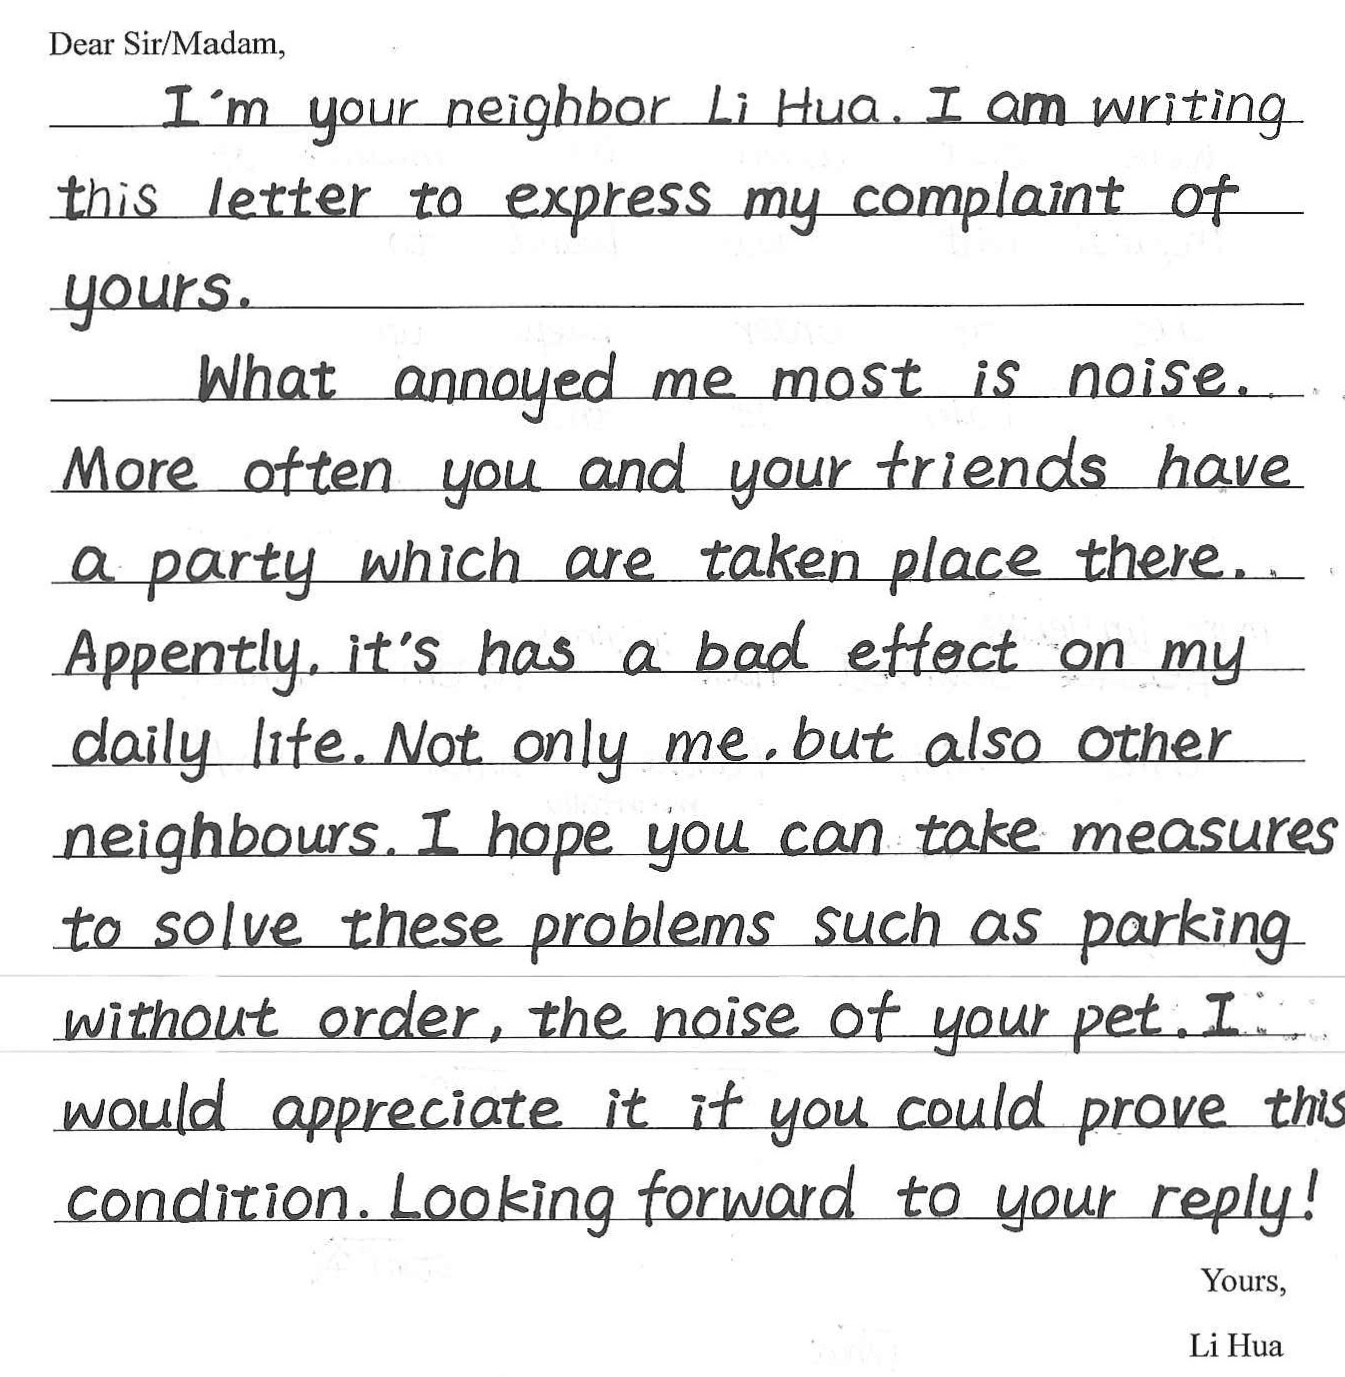 Dear Sir/Madam,
I'm your neighbor Li Hua. I am writing
this letter to express my complaint of
yours.
What annoyed me most is noise.
More often you and your friends have
a party which are taken place there.
Appently, it's has a bad effect on my
daily life. Not only me, but also other
neighbours. I hope you can take measures
to solve these problems such as parking
without order, the noise of your pet. I
would appreciate it if you could prove this
condition. Looking forward to your reply!
Yours,
Li Hua